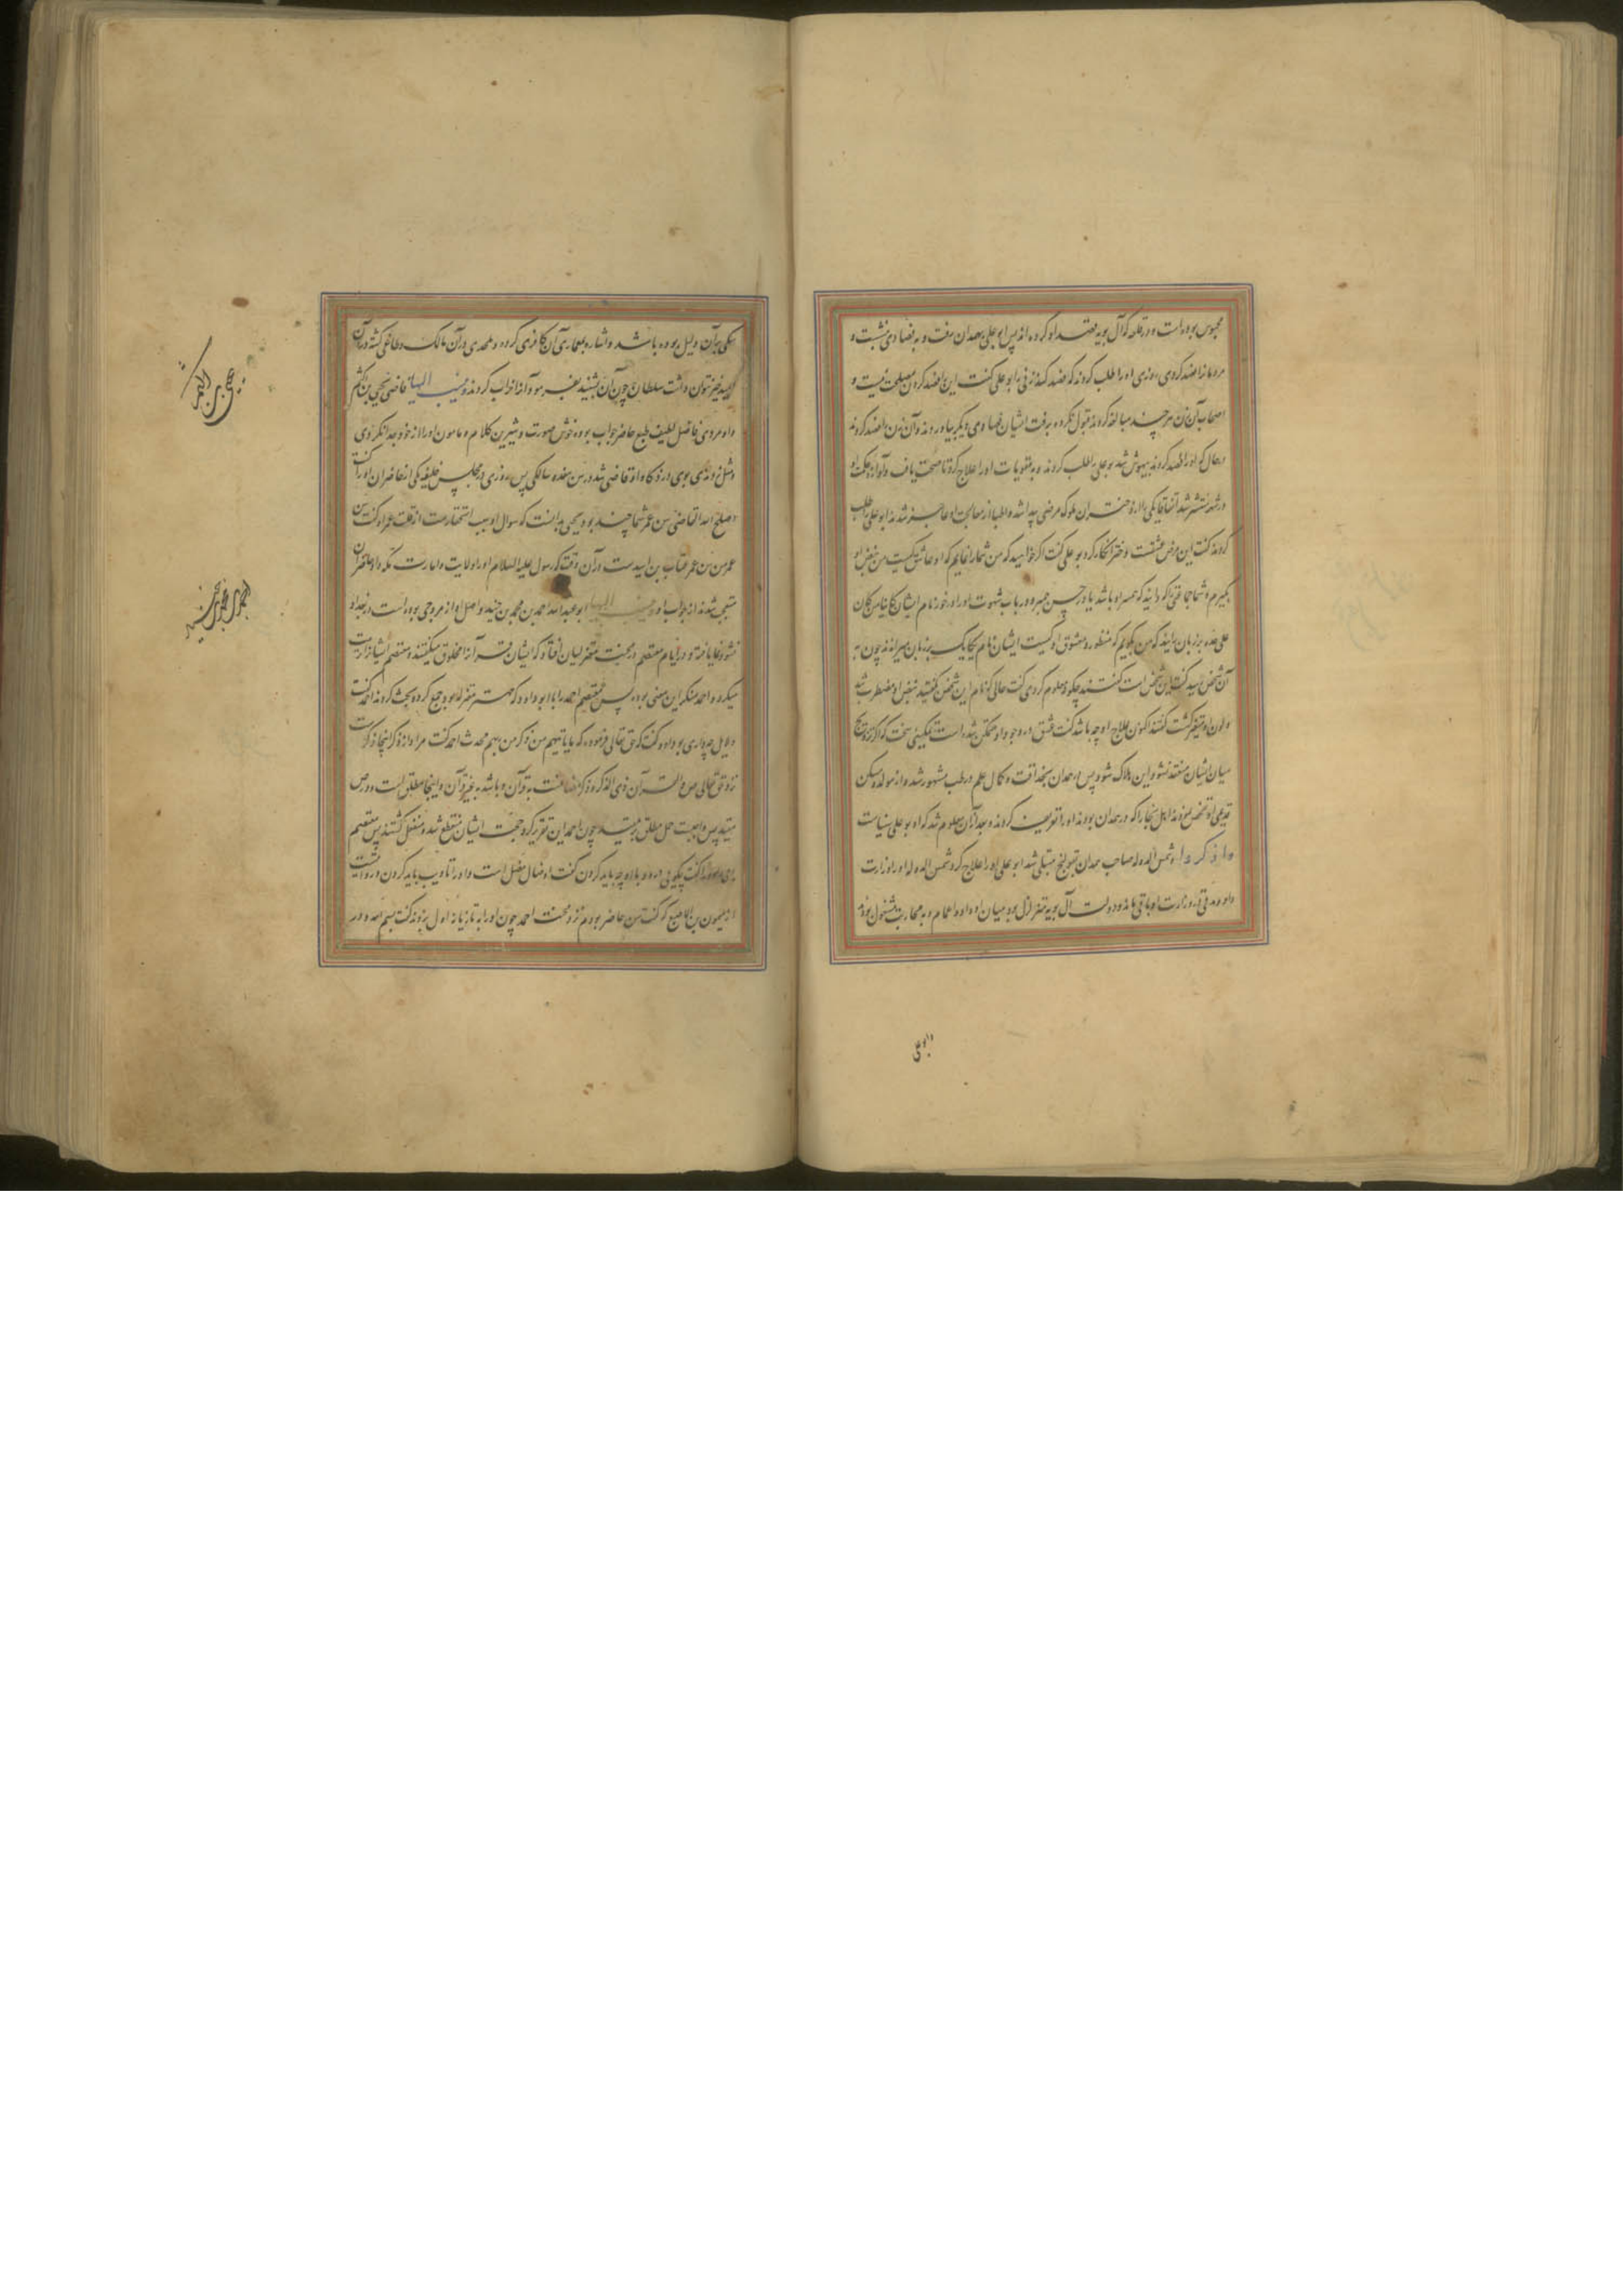 محبوس بوده است و در قلعه که آل بویه قصد او کرده اند پس ابو علی بهمدان رفت و به فصادی نشست و
مردمانرا فصد کردی روزی او را طلب کردند که فصد کند زنی را ابو علی گفت این را فصد کردن مصلحت نیست و
اصحاب آن زن هر چند مبالغه کردند قبول نکرد و برفت ایشان فصادی دیگر بیاوردند و آن زن را فصد کردند
در حال که او را فصد کردند بیهوش شد بو علی را طلب کردند و به مقویات او را علاج کرد تا صحت یافت و آوازه حکمت او
در شهر منتشر شد اتفاقا یکی را از دختران ملوک مرضی پیدا شد و اطبا از معالجت او عاجز شدند ابو علی را طلب
کردند گفت این مرض عشقست و دختر انکار کرد بو علی گفت اگر خواهید که من شما را نمایم که او عاشق کیست من نبض او
بگیرم و شما جماعتی را که دانید که همسر او باشد یا در حسن و در باب شهوت او را در خور نام ایشان کاینا من کان
علی حده بر زبان رانید که من بگویم که منظور و معشوق او کیست ایشان نام یکایک بر زبان میراندند چون به
آن شخص رسید گفت این شخص است گفتند چگونه معلوم کردی گفت حالی که نام این شخص گفتید نبض او مضطرب شد
و لون او متغیر گشت گفتند اکنون علاج او چه باشد گفت عشق در وجود او متمکن شده است تمکینی سخت که اگر تزویج
میان ایشان منعقد نشود این هلاک شود پس در همدان بحذاقت و کمال علم در طب مشهور شد و از مولد و مسکن
قدیمی او تفحص نمودند اهل بخارا که در همدان بودند او را تعریف کردند و بعد از آن معلوم شد که او بو علی سیناست
و شمس الدوله صاحب همدان بقولنج مبتلی شد ابو علی او را علاج کرد شمس الدوله او را وزارت
داد و مدتی در وزارت او باقی ماند و دولت آل بویه متزلزل بود میان او و اولاد اعمام و به محاربت مشغول بودند
ابو علی
یکی بر آن دلیل بوده باشد و اشاره بمعماری آن کافری کرده و ملحدی در آن ممالک و طاغی گشته در آن
امید خیر نتوان داشت سلطان چون آن بشنید بفرمود و آنرا خراب کردند و ینسب الیها قاضی یحیی بن اکثم
و او مردی فاضل لطیف طبع حاضر جواب بوده خوش صورت و شیرین کلام و مامون او را از خود جدا نکردی
و مثل وزیری بودی در ذکا و او قاضی شد در سن هفده سالگی پس روزی در مجلس خلیفه یکی از حاضران او را گفت
اصلح الله القاضی سن عمر شما چند بود یحیی بدانست که سوال او بسبب استحقارست از قلت عمر او گفت سن
عمر من سن عمر عتاب بن اسید ست در آن وقت که رسول علیه السلام او را ولایت و امارت مکه داد حاضران
متعجب شدند از جواب او و ینسب الیها ابو عبدالله احمد بن محمد بن حنبل و اصل او از مرو جی بوده است در بغداد
نشو و نما یافته و در ایام معتصم در محنت معتزلیان افتاد که ایشان قرآن را مخلوق میگفتند و معتصم ایشانرا تربیت
میکرد و احمد منکر این معنی بود پس معتصم احمد را با ابو داود که مهتر معتزله بود جمع کرد و بحث کردند احمد گفت
دلایل چه داری بو داود گفت که حق تعالی فرموده که مایاتیهم من ذکر من ربهم محدث احمد گفت مراد از ذکر اینجا ذکر است
نزد حق تعالی ص و القرآن ذی الذکر و ذکر مضافست به قرآن و باشد به غیر قرآن و اینجا مطلق است و در ص
مقید پس واجبست حمل مطلق بر مقید چون احمد این تقریر کرد حجت ایشان منقطع شد و منفعل گشتند پس معتصم
ابو داود را گفت چگویی در و با او چه باید کردن گفت او ضال مضل است و او را تادیب باید کردن و روایت است
از میمون بن الاصبغ که گفت من حاضر بودم نزد محنت احمد چون او را به تازیانه اول بزدند گفت بسم الله و در
یحیی بن اکثم
احمد بن محمد بن حنبل